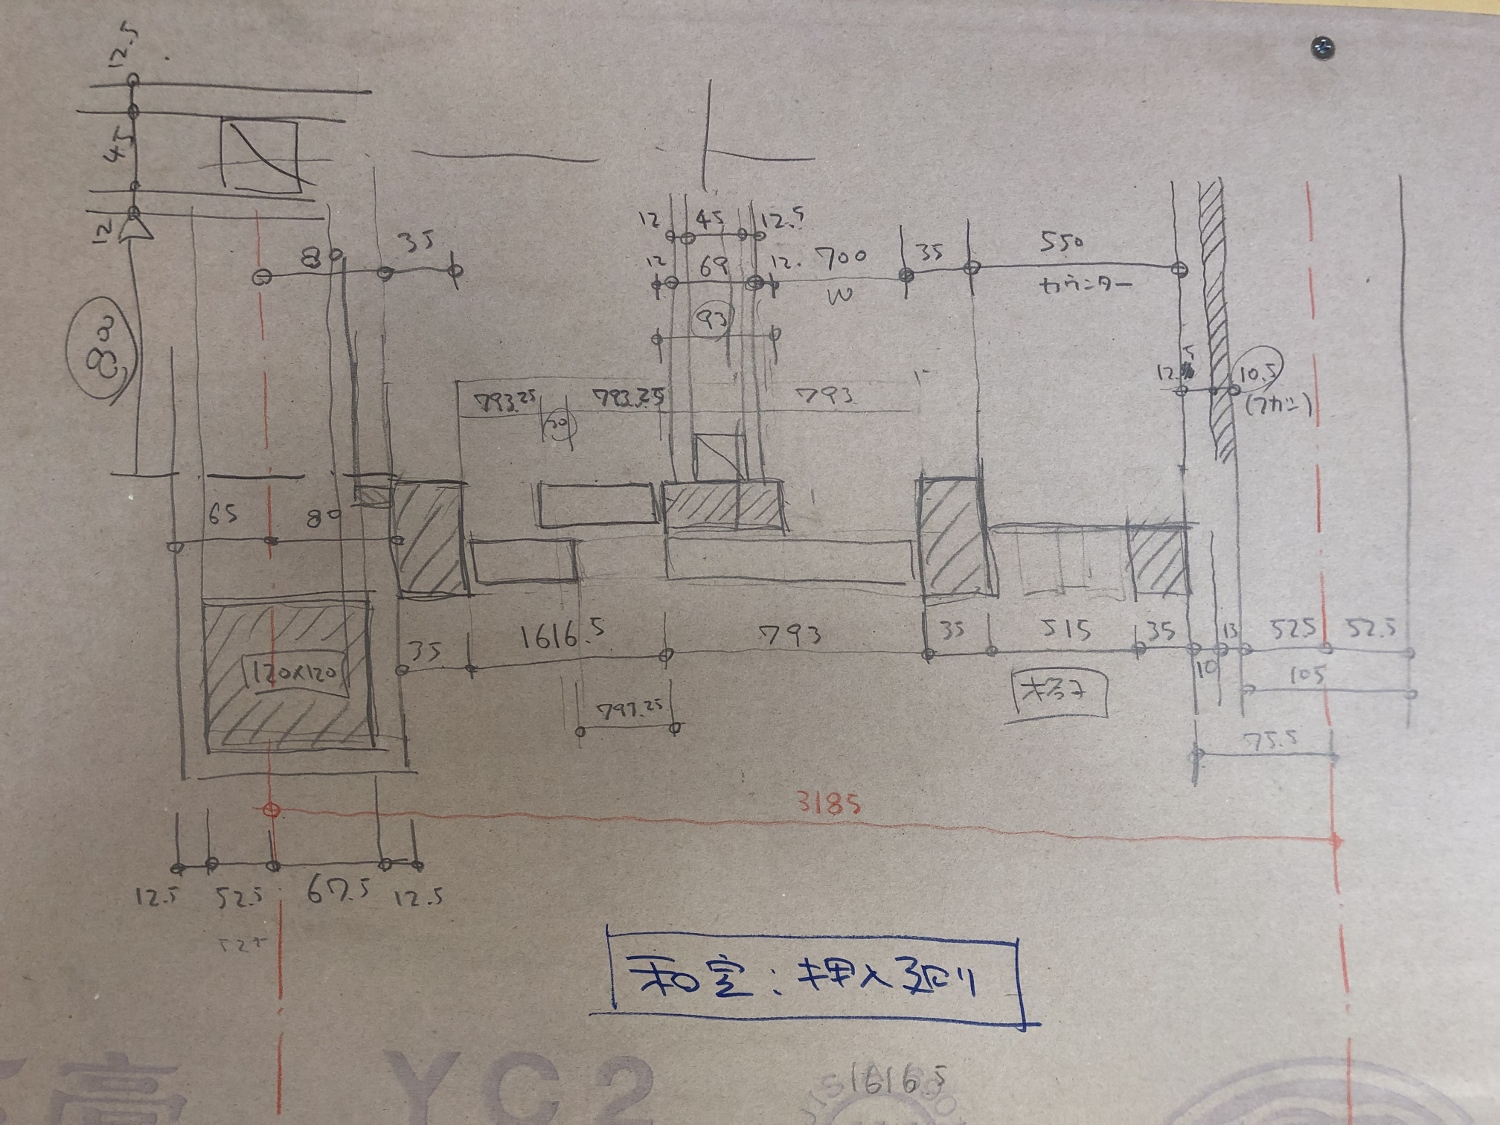 12.5
45
12
800
80
35
12
45
12.5
12
69
12.
700
W
35
550
カウンター
93
793.25
793.25
30
793
12.5
10.5
65
80
120×120
35
1616.5
793
35
515
35
10
13
52.5
52.5
105
797.25
75.5
3185
12.5
52.5
67.5
12.5
525
和室:押入廻り
1616.5
高
YC2